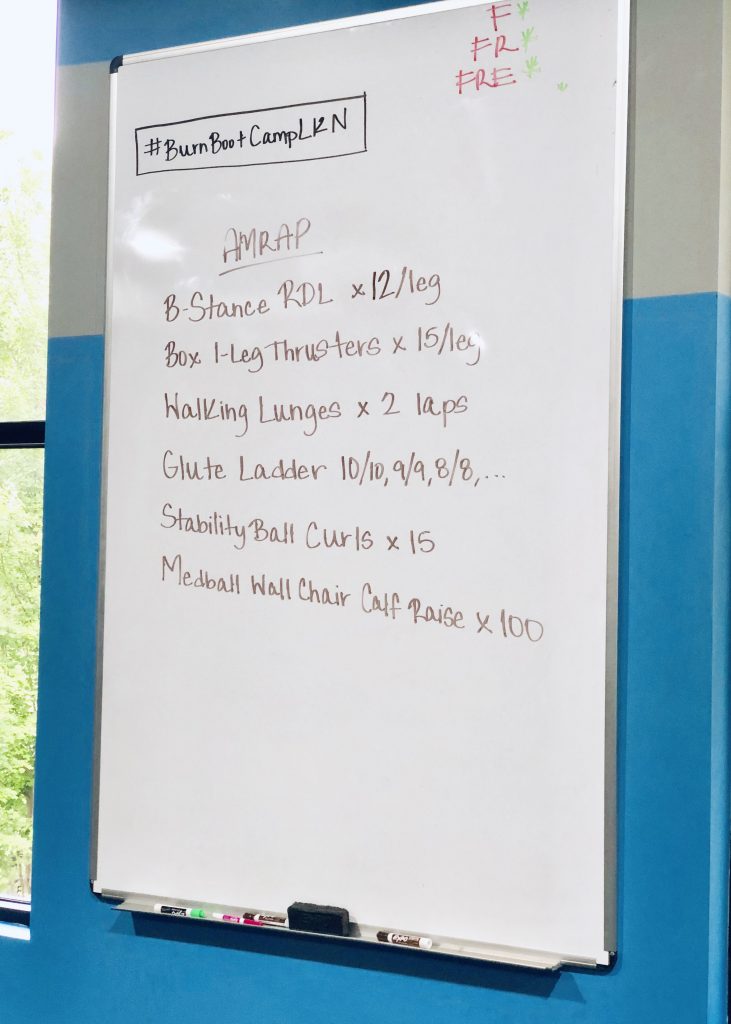 F
FR
FRE
#BurnBootCampLKN
AMRAP
B-Stance RDL x 12/leg
Box 1-Leg Thrusters x 15/leg
Walking Lunges x 2 laps
Glute Ladder 10/10, 9/9, 8/8, ...
Stability Ball Curls x 15
Medball Wall Chair Calf Raise x 100